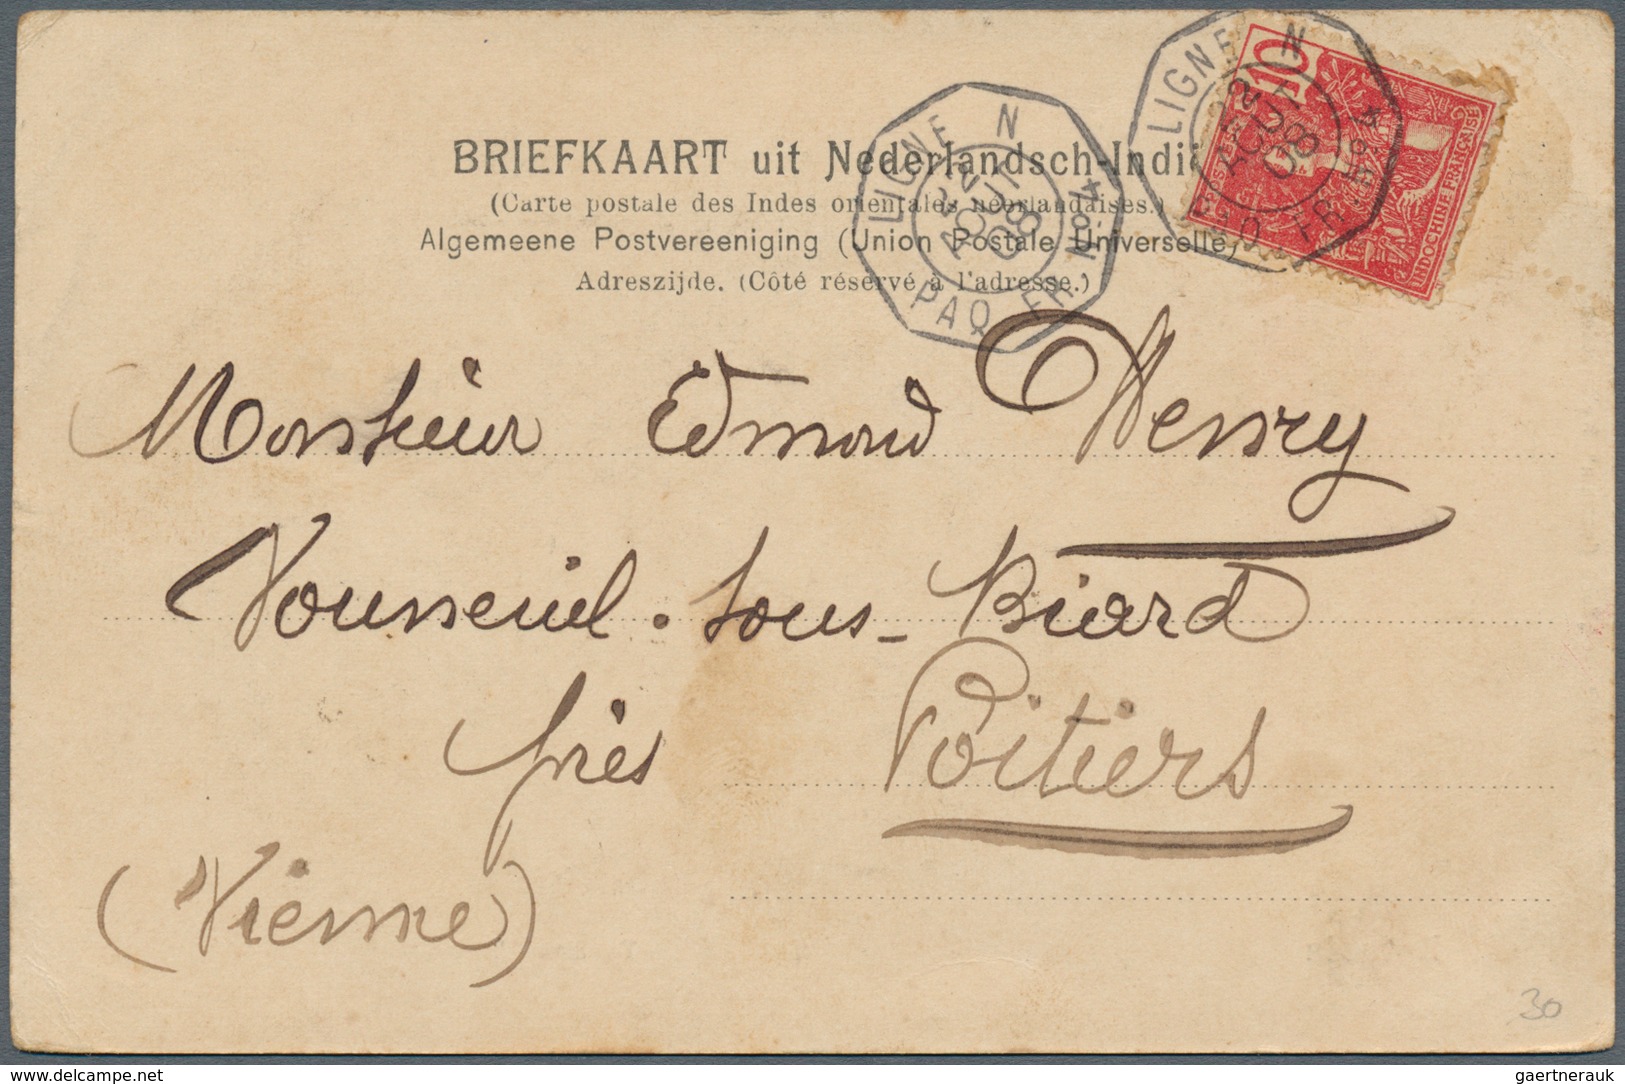 BRIEFKAART uit Nederlandsch-Indië
(Carte postale des Indes orientales néerlandaises.)
Algemeene Postvereeniging (Union Postale Universelle)
Adreszijde. (Côté réservé à l'adresse.)
LIGNE N
2
AOUT
08
PAQ FR Nº4
LIGNE N
2
AOUT
08
FR Nº4
10
INDOCHINE FRANÇAISE
Monsieur Edmond Henry
Vouneuil-sous-Biard
près Poitiers
(Vienne)
30
delcampe.net
gaertnerauk